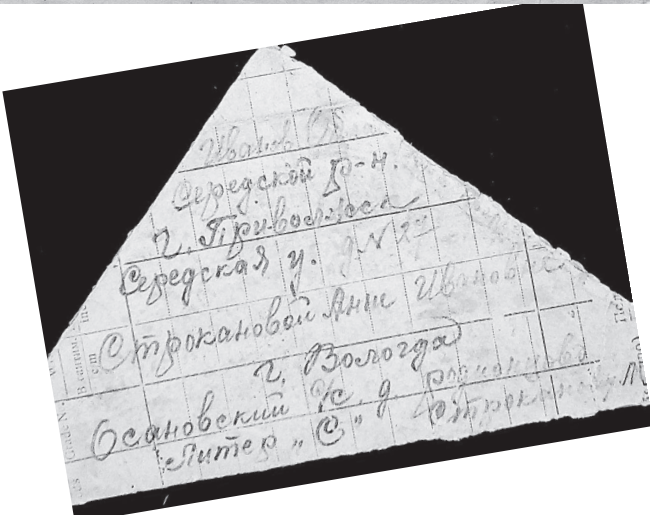 Иванов. Обл.
Середской р-н.
г. Приволжск
Середская у. д N 23
Строкановой Анне Ивановне
г. Вологда
Осановский с/с д. Родионцево
Литер „С“ Строканову